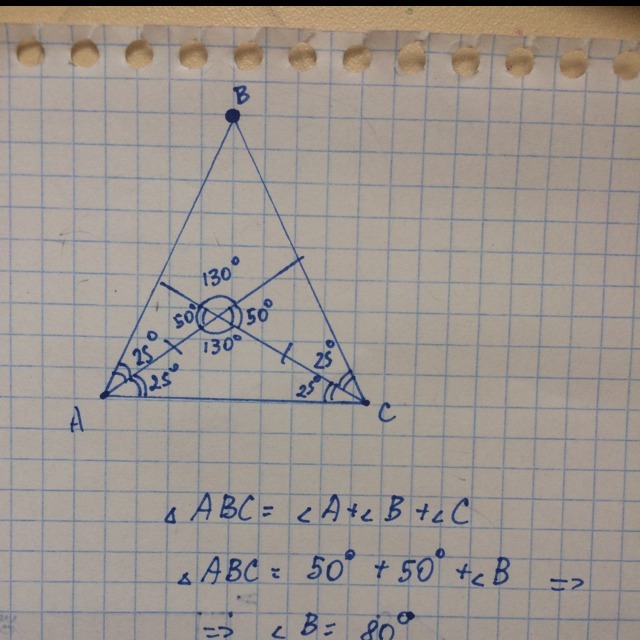 B
130°
50° 50°
130°
25° 25°
25° 25°
A C
△ ABC = ∠A + ∠B + ∠C
△ ABC = 50° + 50° + ∠B =>
=> ∠B = 80°